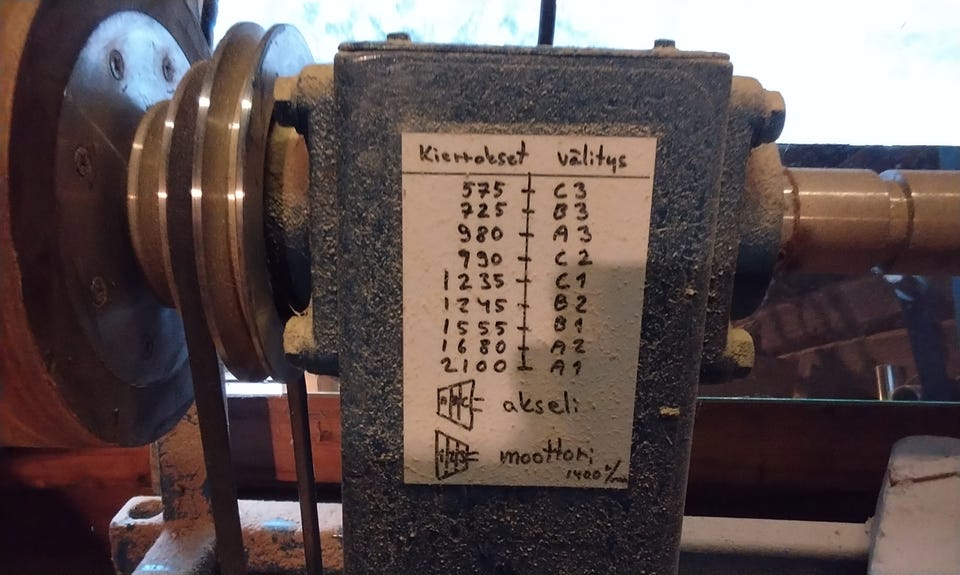 Kierrokset välitys
575 C3
725 B3
980 A3
990 C2
1235 C1
1245 B2
1555 B1
1680 A2
2100 A1
ABC akseli
123 moottori
1400